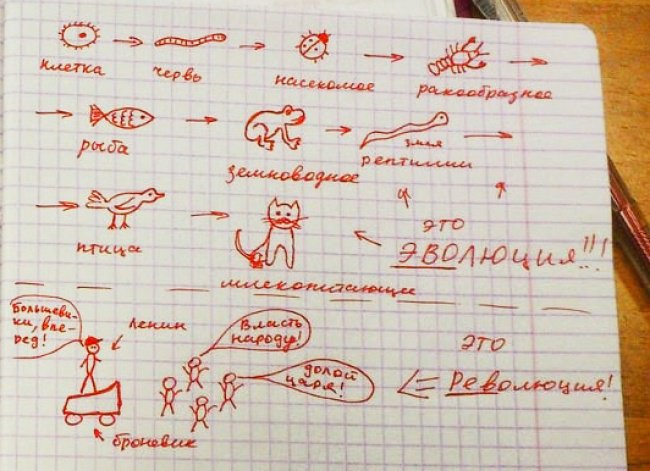 клетка червь насекомое ракообразное
рыба земноводное змея рептилии
птица млекопитающие
это
ЭВОЛЮЦИЯ!!!
Большеви-
ки, впе-
рёд!
Ленин
Власть
народу!
долой
царя!
броневик
это
Революция!